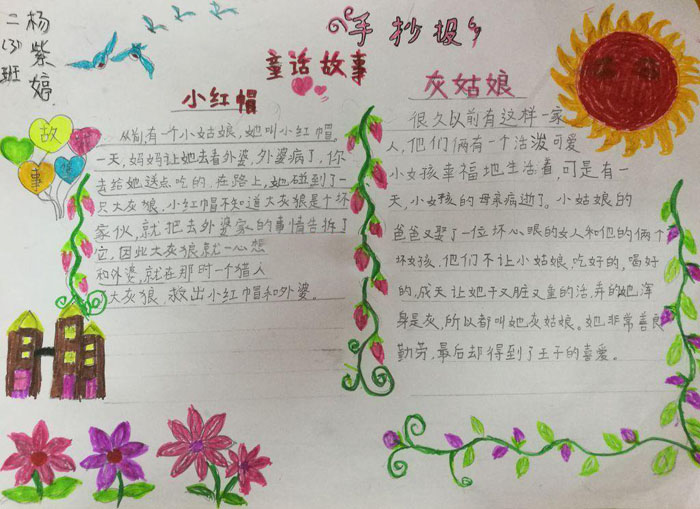 二(3)班
杨紫婷
手抄报
童话故事
故
事
小红帽
从前,有一个小姑娘,她叫小红帽。
一天,妈妈让她去看外婆,外婆病了,你
去给她送点吃的,在路上,她碰到了一
只大灰狼,小红帽不知道大灰狼是个坏
家伙,就把去外婆家的事情告拆了
它,因此大灰狼就一心想
和外婆,就在那时一个猎人
大灰狼,救出小红帽和外婆。
灰姑娘
很久以前有这样一家
人,他们俩有一个活泼可爱
小女孩幸福地生活着,可是有一
天,小女孩的母亲病逝了。小姑娘的
爸爸又娶了一位坏心眼的女人和他的俩个
坏女孩,他们不让小姑娘,吃好的,喝好
的,成天让她干又脏又重的活,弄的她浑
身是灰,所以都叫她灰姑娘。她非常善良
勤劳,最后却得到了王子的喜爱。